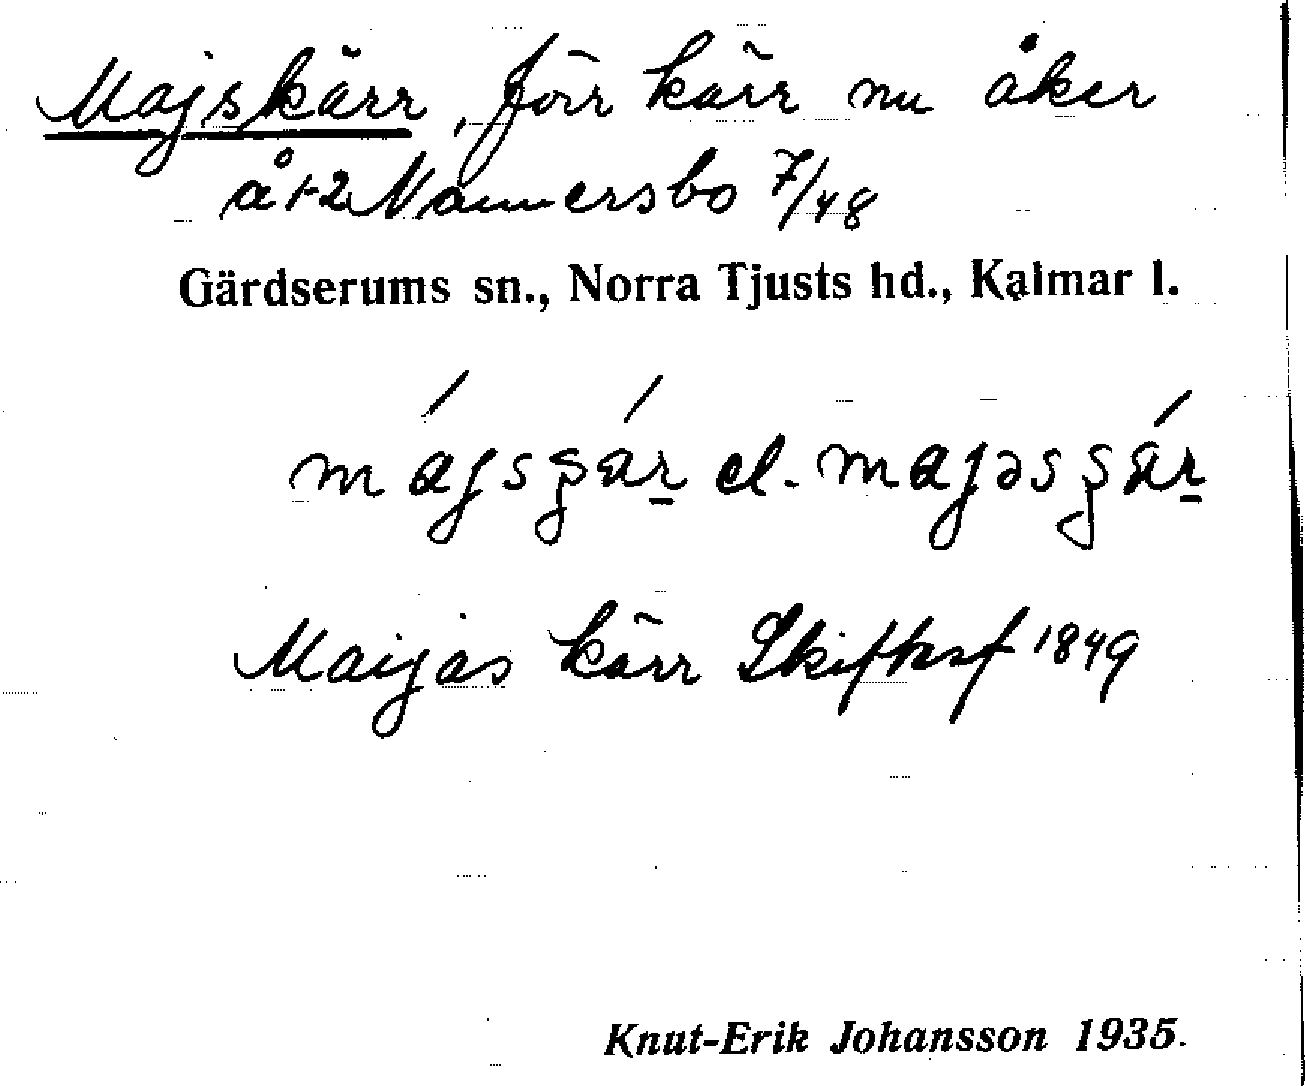 Majskärr, förr kärr nu åker
å 1-2 Nannersbo 7/48
Gärdserums sn., Norra Tjusts hd., Kalmar l.
májsgár el. majəsgár
Maijas kärr Skifteskf 1849
Knut-Erik Johansson 1935.